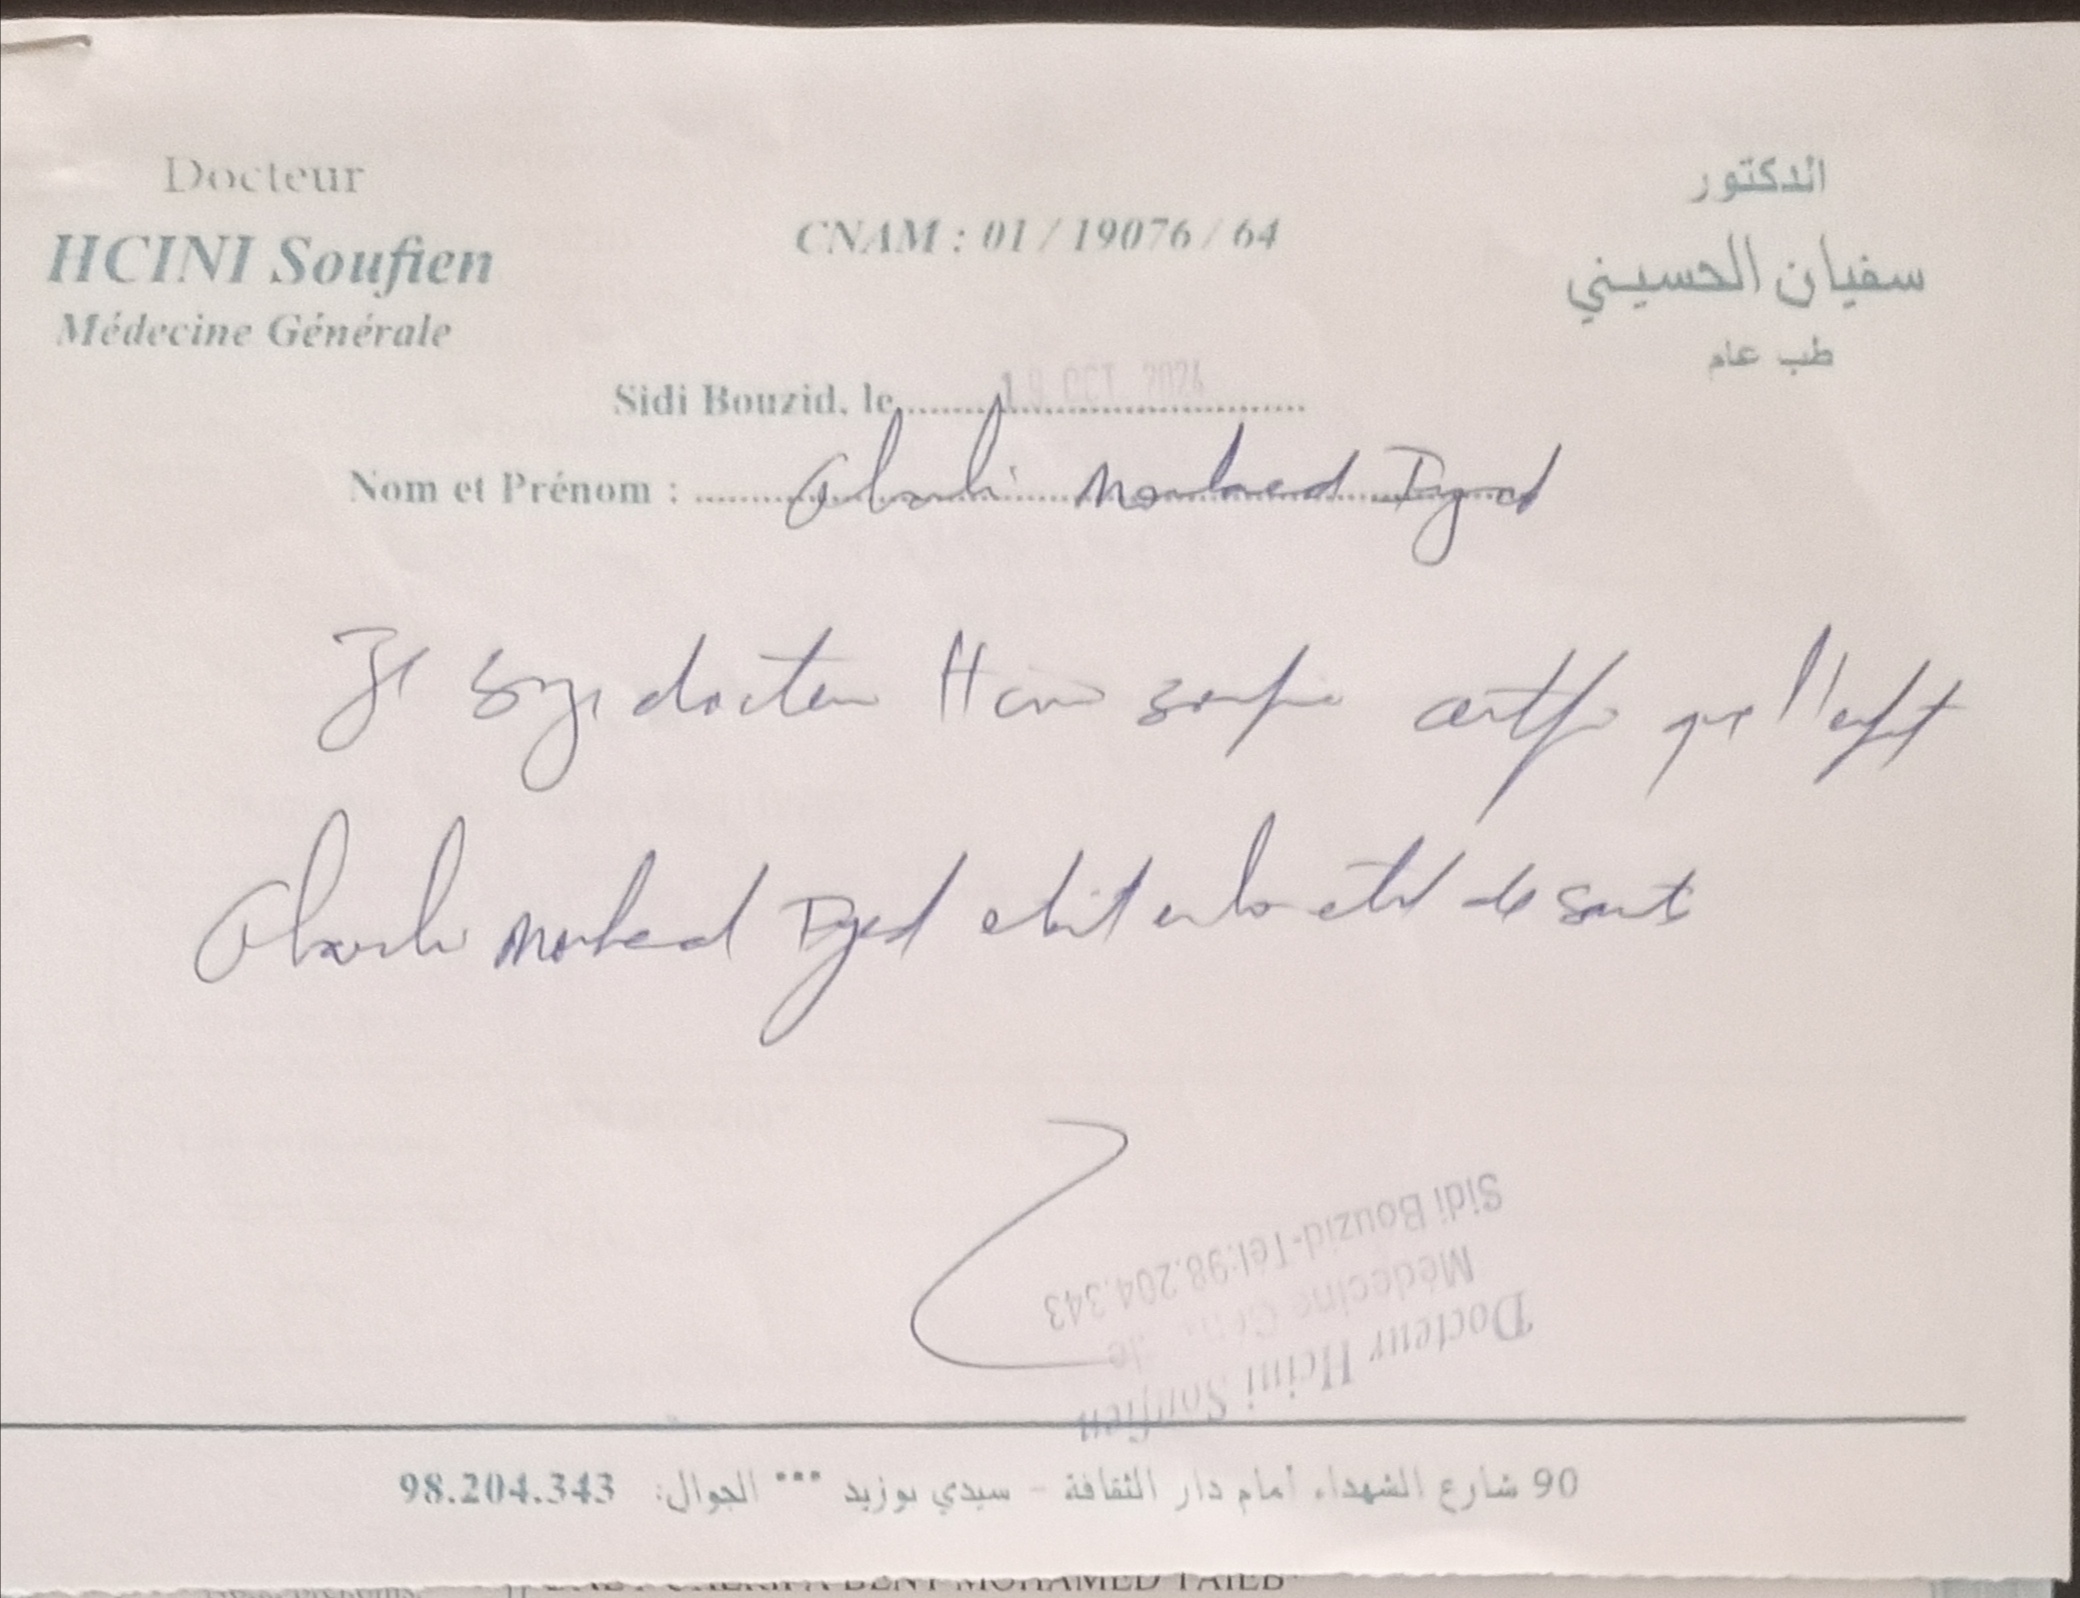 Docteur
HCINI Soufien
Médecine Générale
CNAM : 01 / 19076 / 64
الدكتور
سفيان الحسيني
طب عام
Sidi Bouzid, le 19 OCT 2024
Nom et Prénom : Mouhamed Iyed
Je sousigné docteur Hcini soufien certifie que l'enfant
Mouhamed Iyed en bon état de santé
Sidi Bouzid-Tél:98.204.343
Médecine Générale
Docteur Hcini Soufien
90 شارع الشهداء أمام دار الثقافة - سيدي بوزيد *** الجوال: 98.204.343
BENT MOHAMED TAIEB